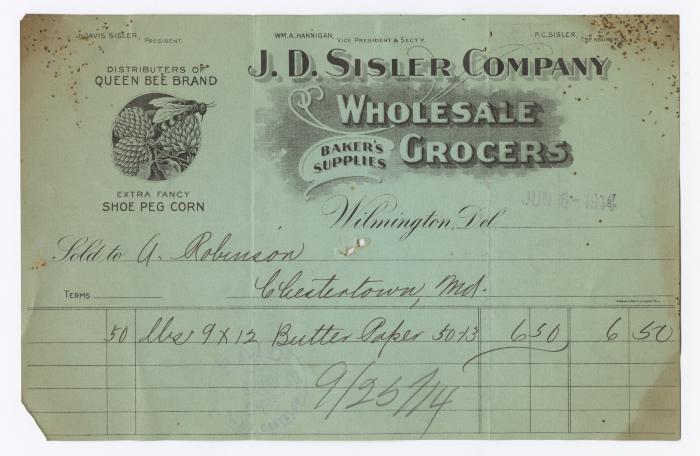 J. DAVIS SISLER, PRESIDENT.
WM. A. HANNIGAN, VICE PRESIDENT & SECT'Y.
P. C. SISLER, TREASURER.
DISTRIBUTERS OF
QUEEN BEE BRAND
EXTRA FANCY
SHOE PEG CORN
J. D. SISLER COMPANY
WHOLESALE
BAKER'S
SUPPLIES
GROCERS
JUN 8 - 1914
Wilmington, Del.
Sold to A. Robinson
TERMS Chestertown, Md.
50 lbs 9 x 12 Butter Paper 50 13 6 50 6 50
9/26/14